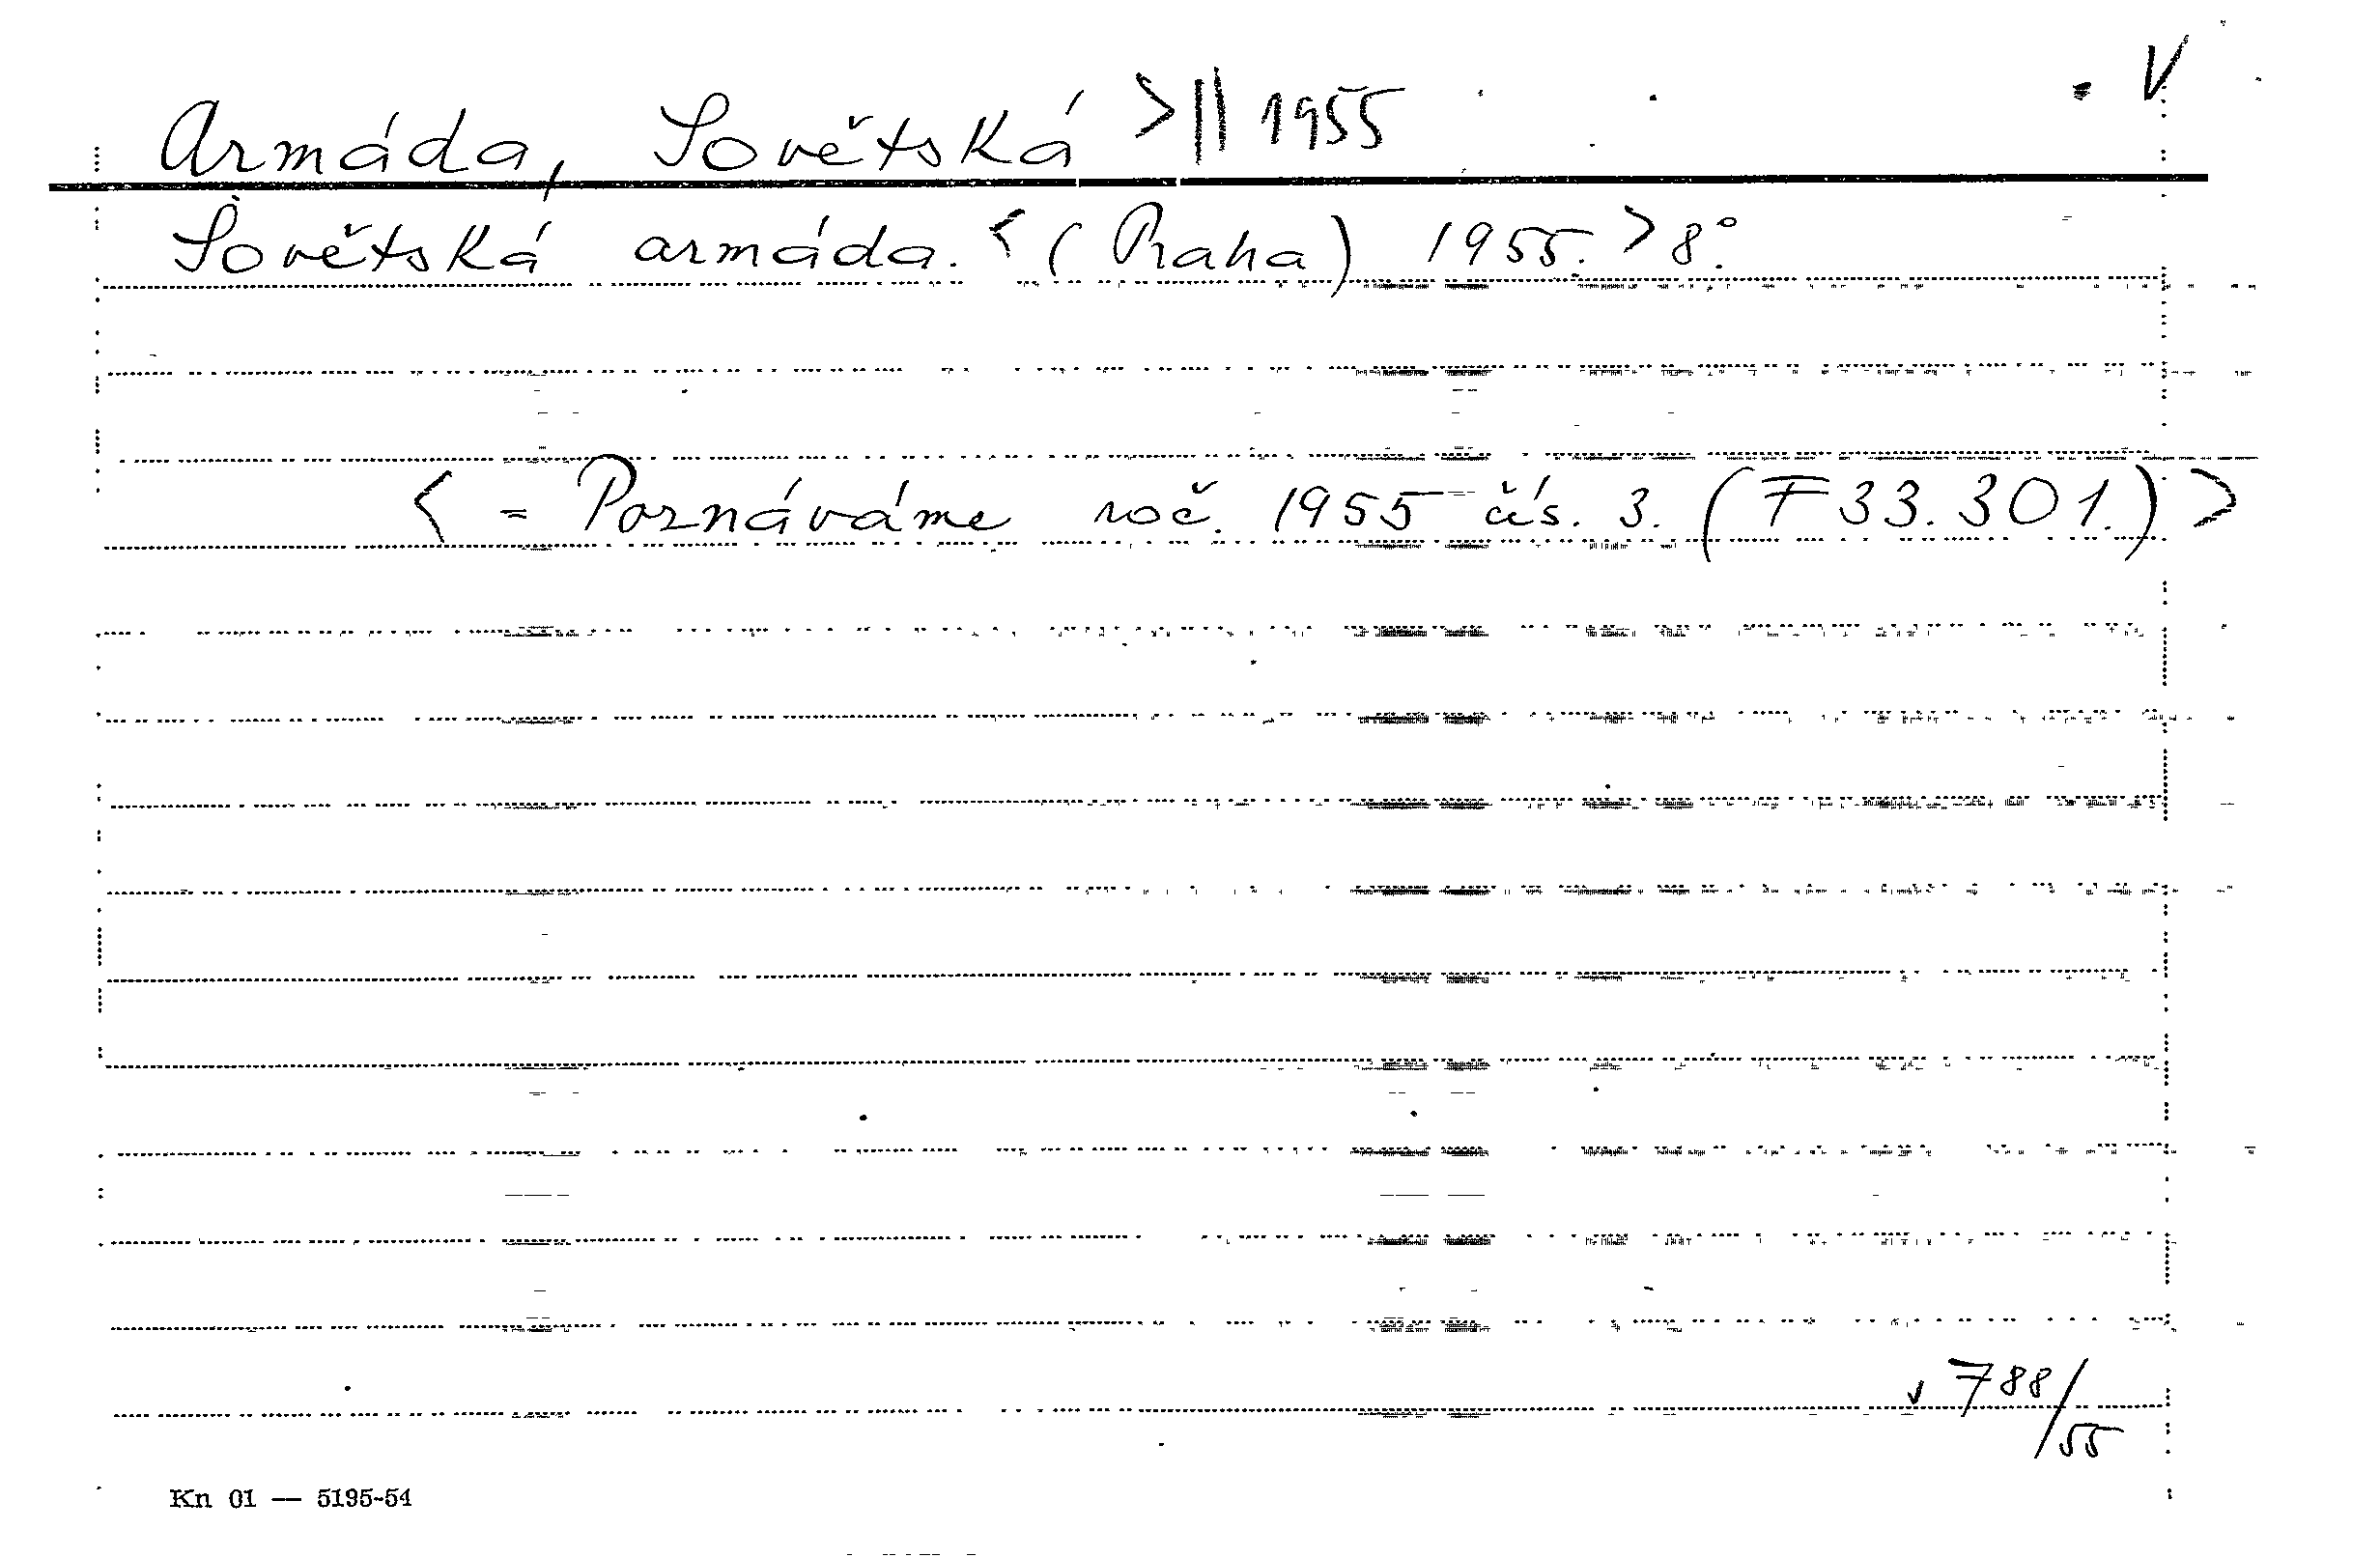 V
Armáda, Sovětská >|| 1955
Sovětská armáda. < (Praha) 1955. > 8°.
< = Poznáváme roč. 1955 čís. 3. (F 33.301.) >
v 788/55
Kn 01 — 5195-54